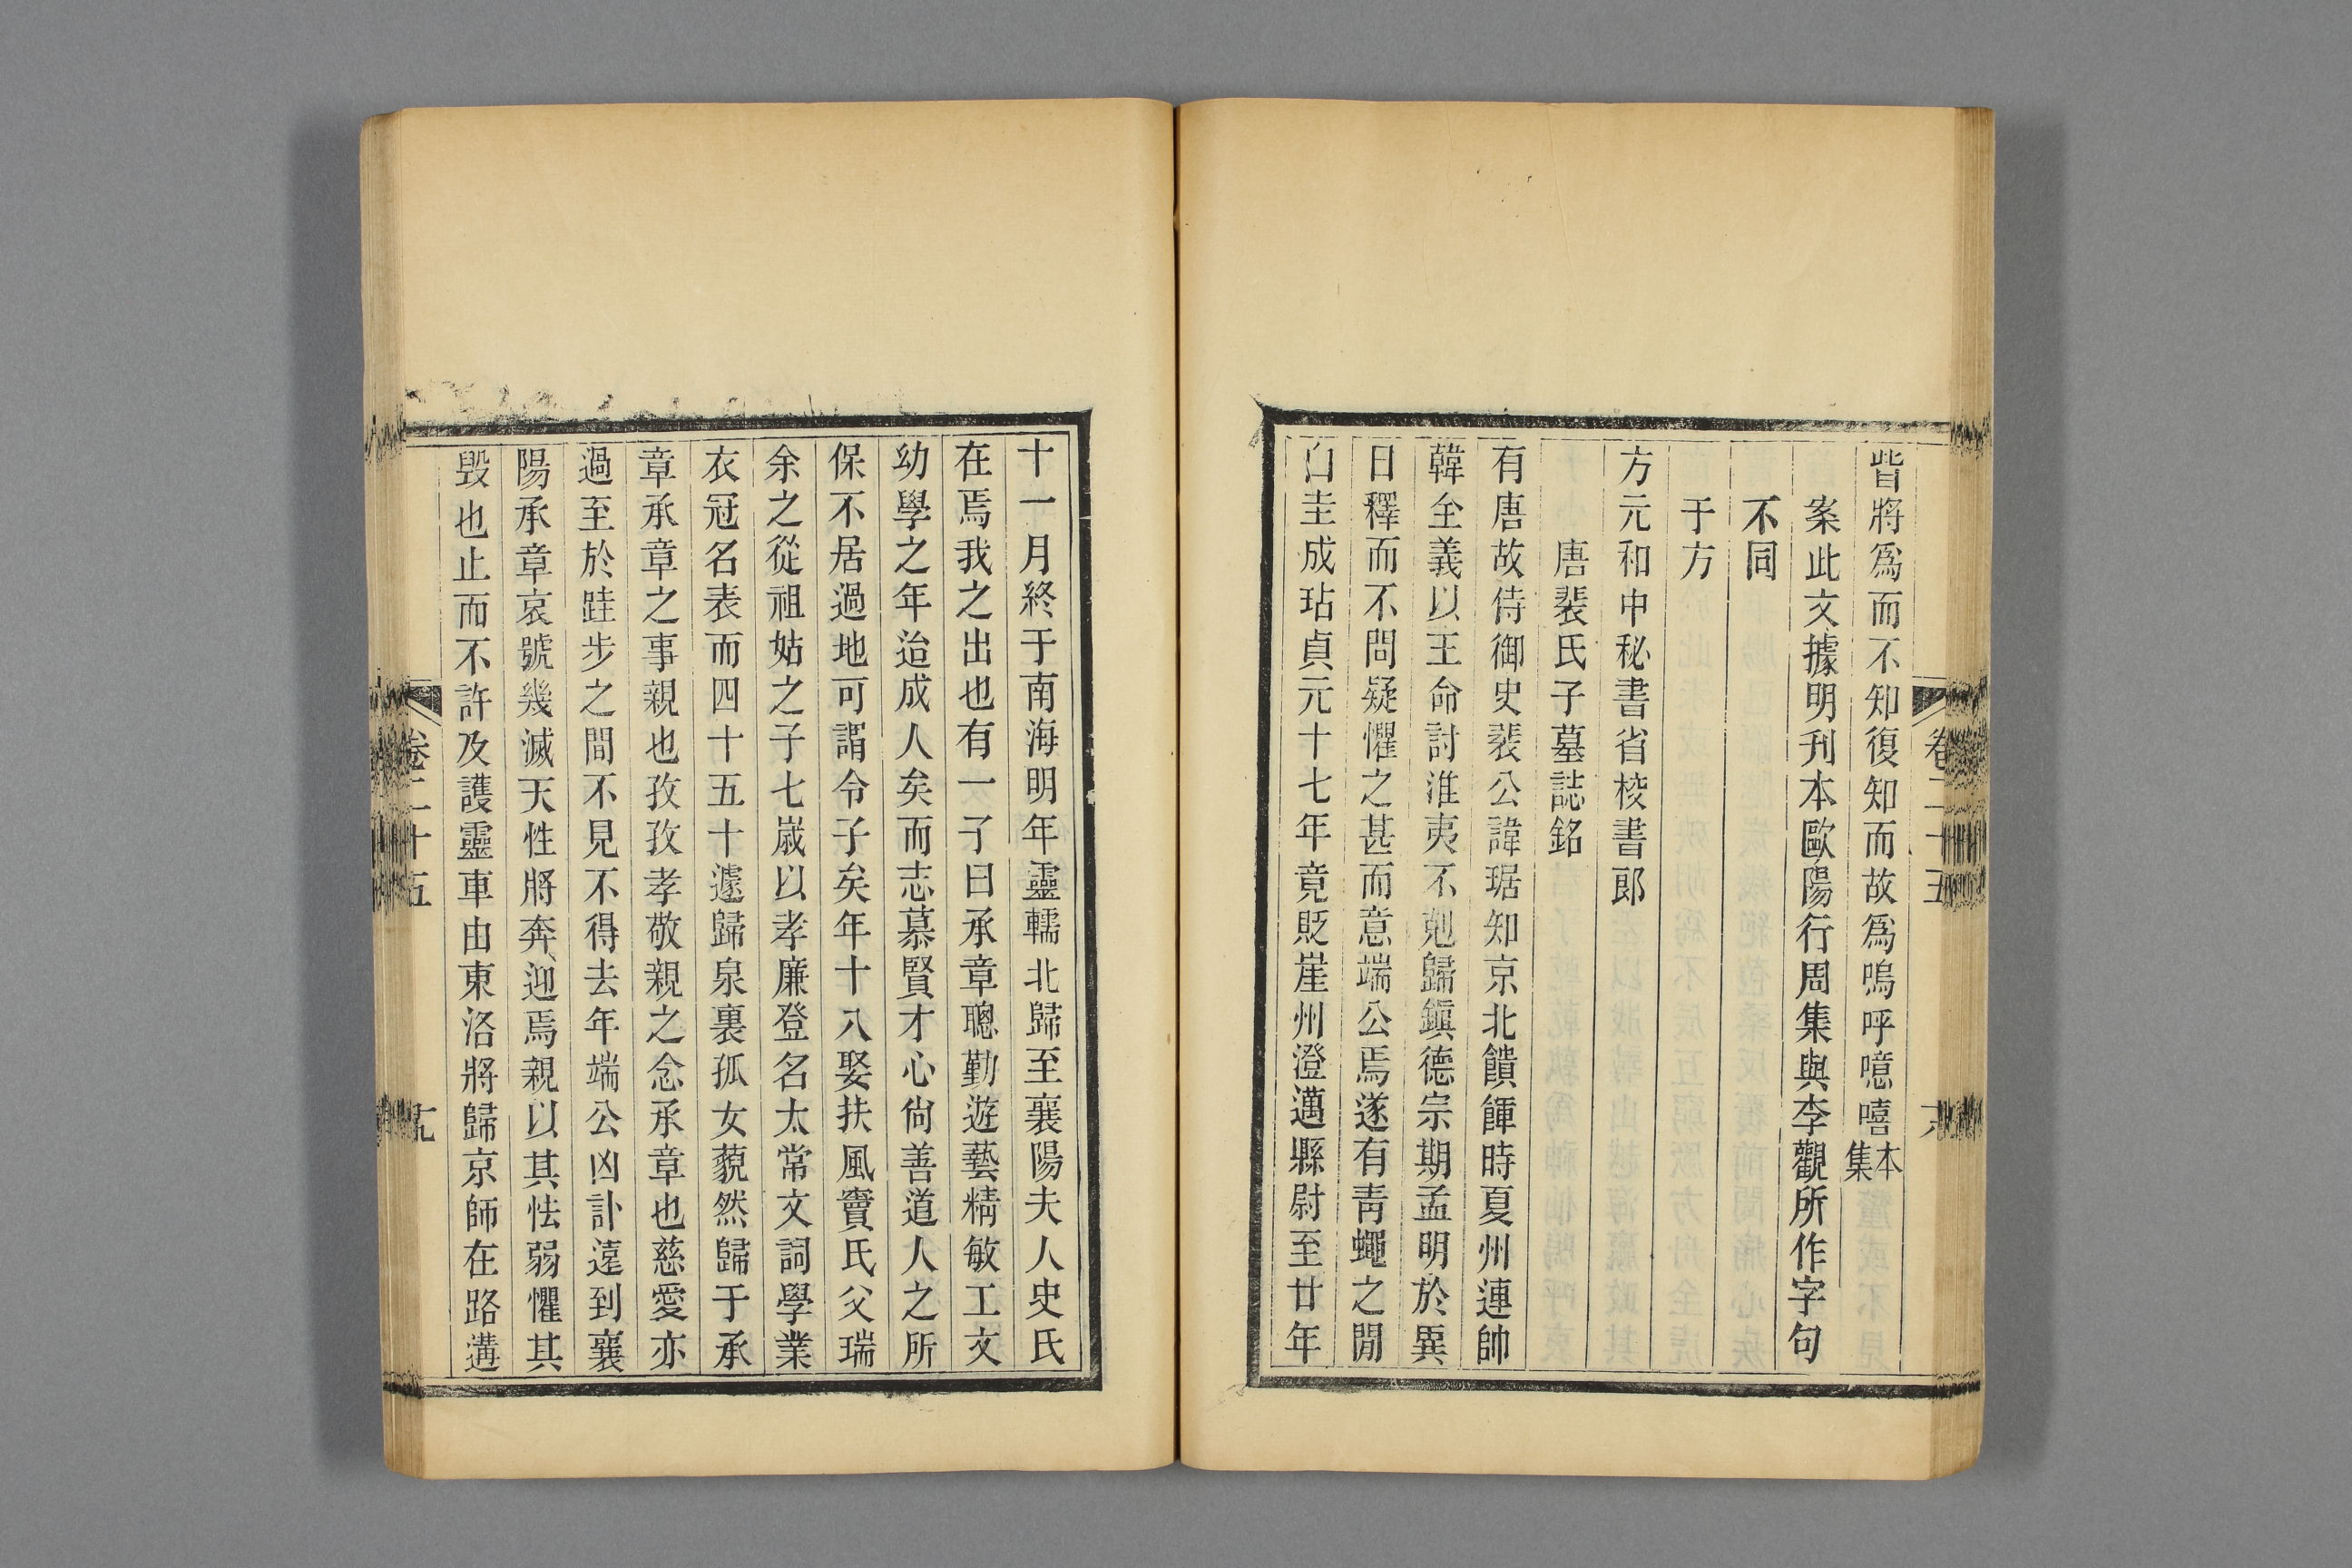 皆將爲而不知復知而故爲嗚呼噫嘻集本
案此文據明刊本歐陽行周集與李觀所作字句
不同
于方
方元和中秘書省校書郎
唐裴氏子墓誌銘
有唐故侍御史裴公諱琚知京北饋餫時夏州連帥
韓全義以王命討淮夷不剋歸鎭德宗期孟明於異
日釋而不問疑懼之甚而意端公焉遂有青蠅之閒
白圭成玷貞元十七年竟貶崖州澄邁縣尉至廿年
卷二十五
十一月終于南海明年靈轜北歸至襄陽夫人史氏
在焉我之出也有一子曰承章聰勤遊藝精敏工文
幼學之年治成人矣而志慕賢才心尙善道人之所
保不居過地可謂令子矣年十八娶扶風竇氏父瑞
余之從祖姑之子七歲以孝廉登名太常文詞學業
衣冠名表而四十五十遽歸泉裏孤女藐然歸于承
章承章之事親也孜孜孝敬親之念承章也慈愛亦
過至於跬步之間不見不得去年端公凶訃遠到襄
陽承章哀號幾滅天性將奔迎焉親以其怯弱懼其
毀也止而不許及護靈車由東洛將歸京師在路遘
卷二十五